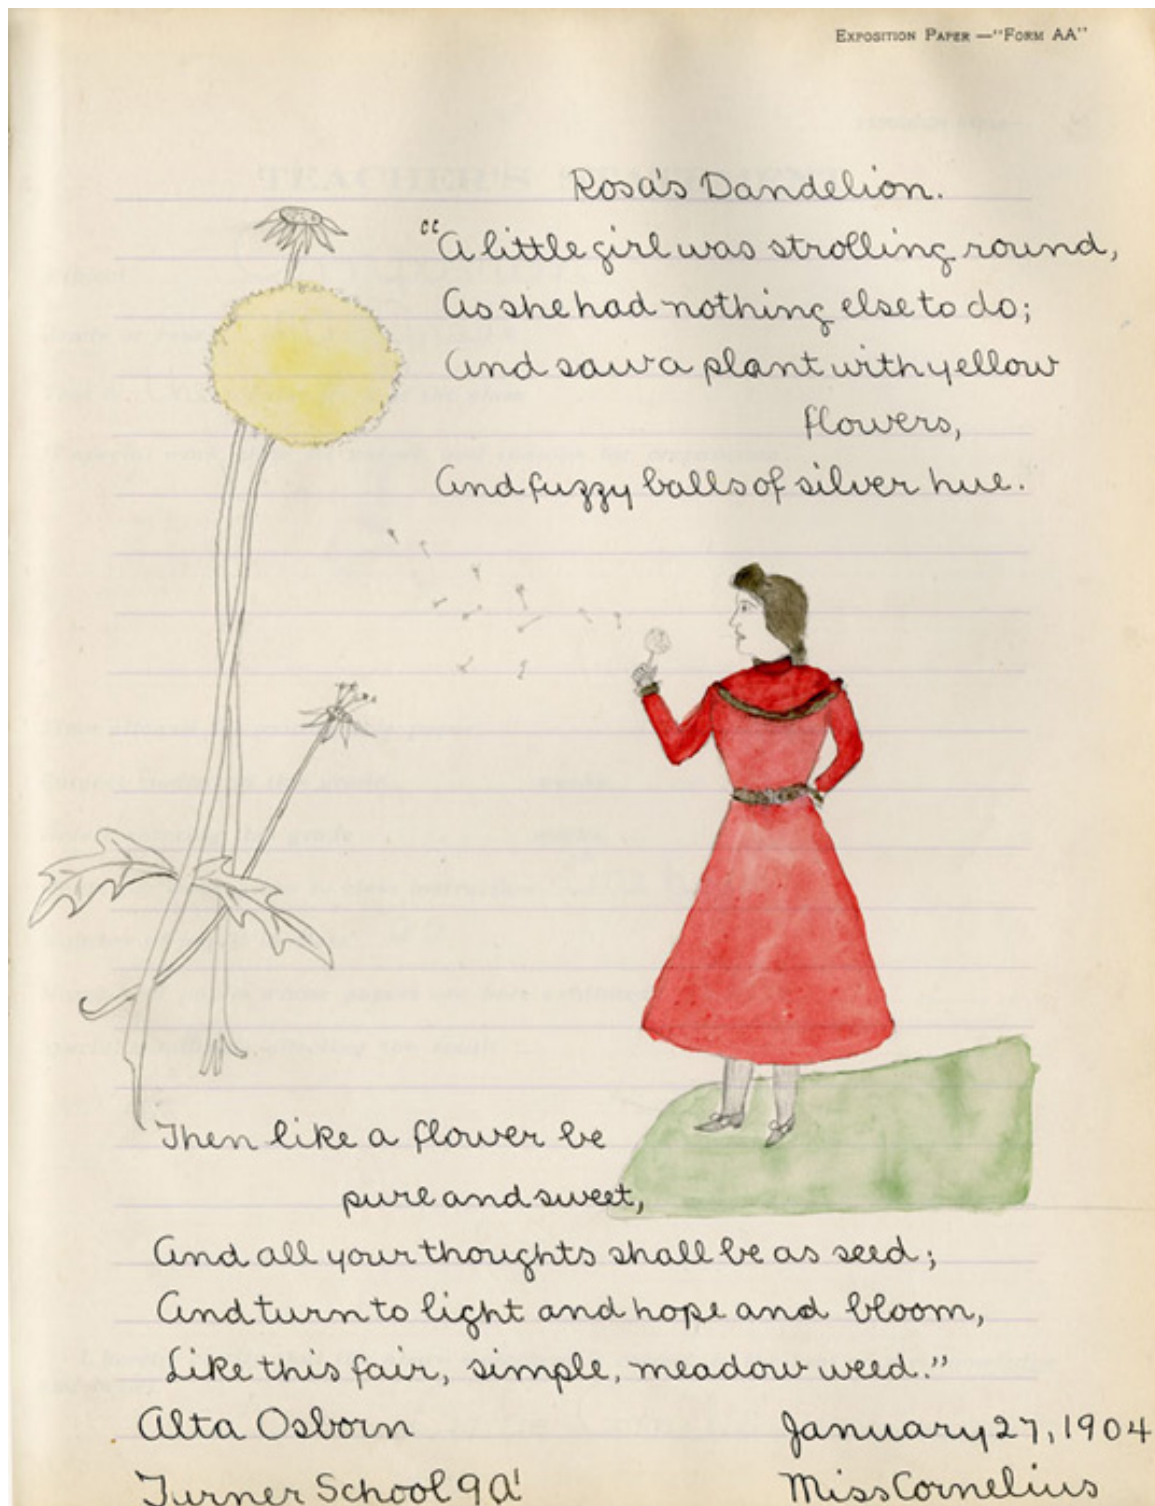 EXPOSITION PAPER—"FORM AA"
Rosa's Dandelion.
"A little girl was strolling round,
As she had nothing else to do;
And saw a plant with yellow
flowers,
And fuzzy balls of silver hue.
Then like a flower be
pure and sweet,
And all your thoughts shall be as seed;
And turn to light and hope and bloom,
Like this fair, simple, meadow weed."
Alta Osborn
January 27, 1904
Turner School 9A'
Miss Cornelius